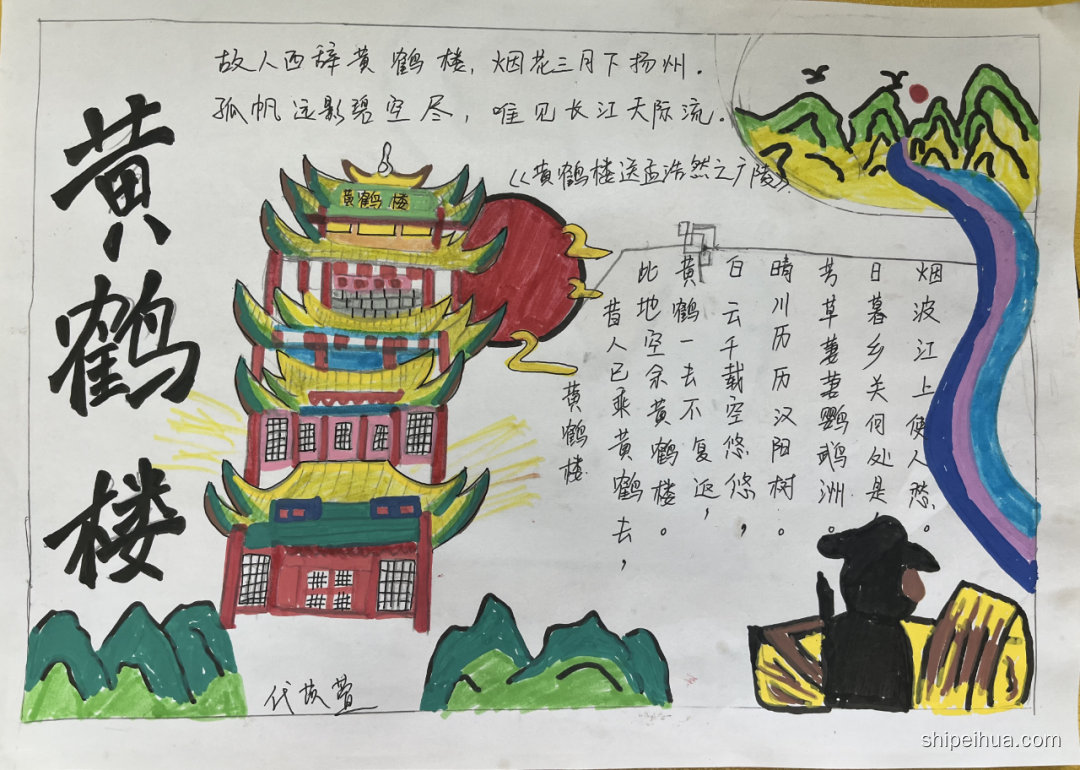 故人西辞黄鹤楼，烟花三月下扬州.
孤帆远影碧空尽，唯见长江天际流.
《黄鹤楼送孟浩然之广陵》
黄鹤楼
黄鹤楼
黄鹤楼
昔人已乘黄鹤去，
此地空余黄鹤楼。
黄鹤一去不复返，
白云千载空悠悠，
晴川历历汉阳树.
芳草萋萋鹦鹉洲。
日暮乡关何处是，
烟波江上使人愁。
shipeihua.com